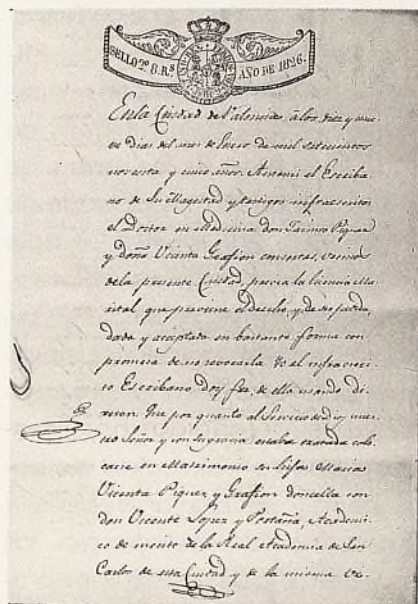 SELLO 2º 8. Rs AÑO DE 1826.
En la Ciudad de Valencia, à los diez y nue
ve dias del mes de Enero de mil setecientos
noventa y cinco años. Antemi el Escriba
no de Su Magestad y testigos infraescritos
el Doctor en Medicina don Jacinto Piquer
y doña Vicenta Grafion consortes, vecinos
de la presente Ciudad, previa la licencia Ma
rital que previene el derecho, y de ser pedida,
dada y aceptada en bastante forma con
promesa de no revocarla Yo el infraescri
to Escribano doy fee, de ella usando di
xeron: Que por quanto al Servicio de Dios nues
tro Señor y con su gracia estaba tratada colo
carse en Matrimonio su hija Maria
Vicenta Piquer y Grafion doncella con
don Vicente Lopez y Portaña, Academi
co de merito de la Real Academia de San
Carlos de esta Ciudad y de la misma ve-